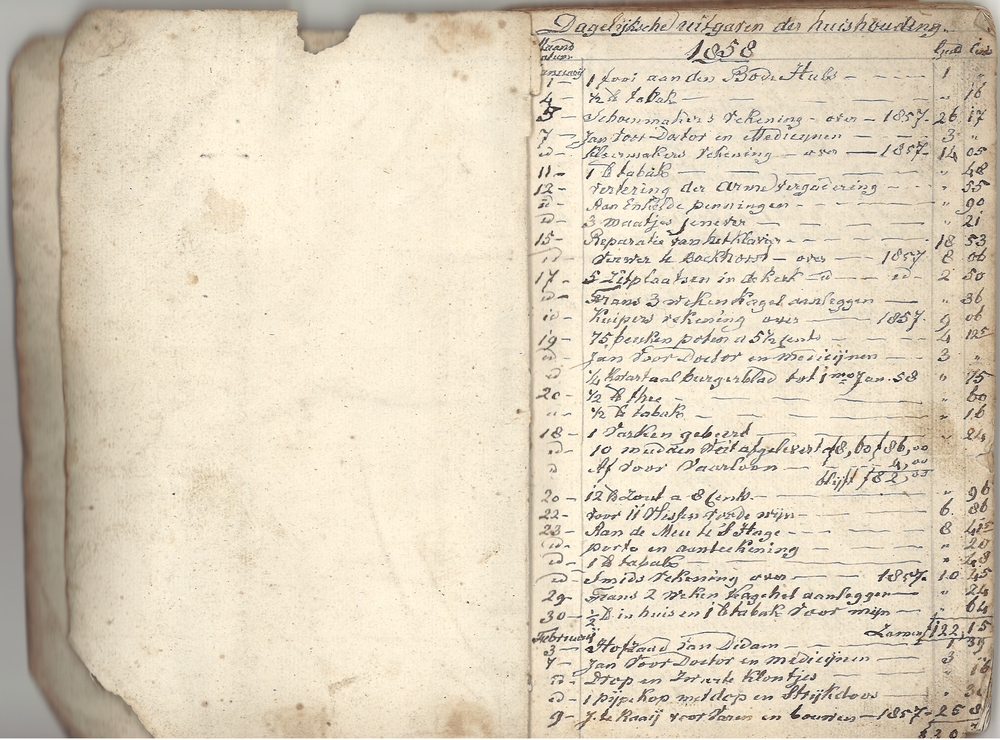 Dagelijksche uitgaven der huishouding
Maand datum 1858
Januarij
1 – 1 fooi aan den Bode Huls 1 "
4 – ½ ℔ tabak " 16
5 – Schoenmakers rekening – over – 1857 – 26 17
7 – Jan voor Doctor en Medicijnen 3 "
id – kleermakers rekening – over – 1857 – 14 05
11 – 1 ℔ tabak " 48
12 – vertering der armevergadering " 55
id – Aan Enkelde penningen " 90
id – 3 maatjes jenever " 21
15 – Reparatie van het klavier 18 53
id – Verwer te – over – 1857 8 06
17 – 5 Zitplaatsen in de kerk – id – id – 2 50
id – Frans 3 weken kagel aanleggen " 36
id – Kuipers rekening over 1857 – 9 06
19 – 75 beuken poten a 5½ cents 4 125
id – Jan voor Doctor en medicijnen 3 "
id ¼ kwartaal burgerblad tot 1mo Jan. 58 " 75
20 – ½ ℔ thee " 60
" – ½ ℔ tabak " 16
18 – 1 Varken " 24
id – 10 mudden afgelevert f 8,60 f 86,00
id Af voor Vaarloon 4,00
blijft f 82,00
20 – 12 ℔ Zout a 8 Cents " 96
22 – voor 11 Flessen roode wijn 6 86
23 – Aan de te S Hage 8 415
id – porto en aanteekening " 20
id – 1 ℔ tabak " 48
id – Smids rekening over 1857 – 10 45
29 – Frans 2 weken kagchel aanleggen " 24
30 – ½ ℔ in huis en 1 ℔ tabak voor mijn " 64
Februarij Zamen f 122 15
3 – van Didam 1 39
7 – Jan voor Doctor en medicijnen 3 "
id – Drop en Zwarte klontjes " 16
id – 1 pijpekop met dop en Strijkdoos "
9 – J. te Raaij voor Varen en bouwen – 1857 – 25 8